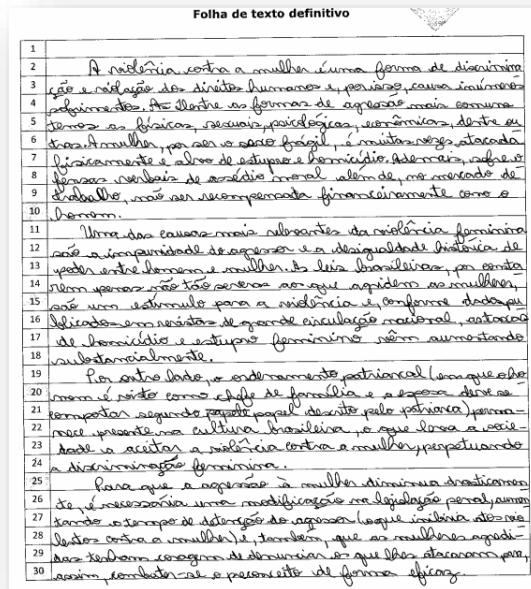 Folha de texto definitivo
1
2 A violência contra a mulher é uma forma de discrimina
3 ção e violação dos direitos humanos e, por isso, causa inúmeros
4 sofrimentos. As Dentre as formas de agressão mais comuns
5 temos as físicas, sexuais, psicológicas, econômicas, dentre ou
6 tras. A mulher, por ser o sexo frágil, é muitas vezes, atacada
7 fisicamente e alvo de estupro e homicídio. Ademais, sofre o
8 verbais de assédio moral além de, no mercado de
9 trabalho, não ser recompensada financeiramente como o
10 homem.
11 Uma das causas mais relevantes da violência feminina
12 são a impunidade do agressor e a desigualdade histórica de
13 poder entre homem e mulher. As leis brasileiras, por conta
14 rem penas não tão severas aos que agridem as mulheres,
15 são um estímulo para a violência e, conforme dados pu
16 blicados em revistas de grande circulação nacional, as taxas
17 de homicídio e estupro feminino vêm aumentando
18 substancialmente.
19 Por outro lado, o ordenamento patriarcal (em que o ho
20 mem é visto como chefe de família e a esposa deve se
21 comportar segundo papel descrito pelo patriarca) perma-
22 nece presente na cultura brasileira, o que leva a socie-
23 dade a aceitar a violência contra a mulher, perpetuando
24 a discriminação feminina.
25 Para que a agressão à mulher diminua drasticamen
26 te, é necessária uma modificação na legislação penal, aumen
27 tando o tempo de detenção do agressor (o que inibiria atos vio
28 lentos contra a mulher) e, também, que as mulheres agredi-
29 das tenham coragem de denunciar os que lhes atacaram para,
30 assim, combater-se o preconceito de forma eficaz.